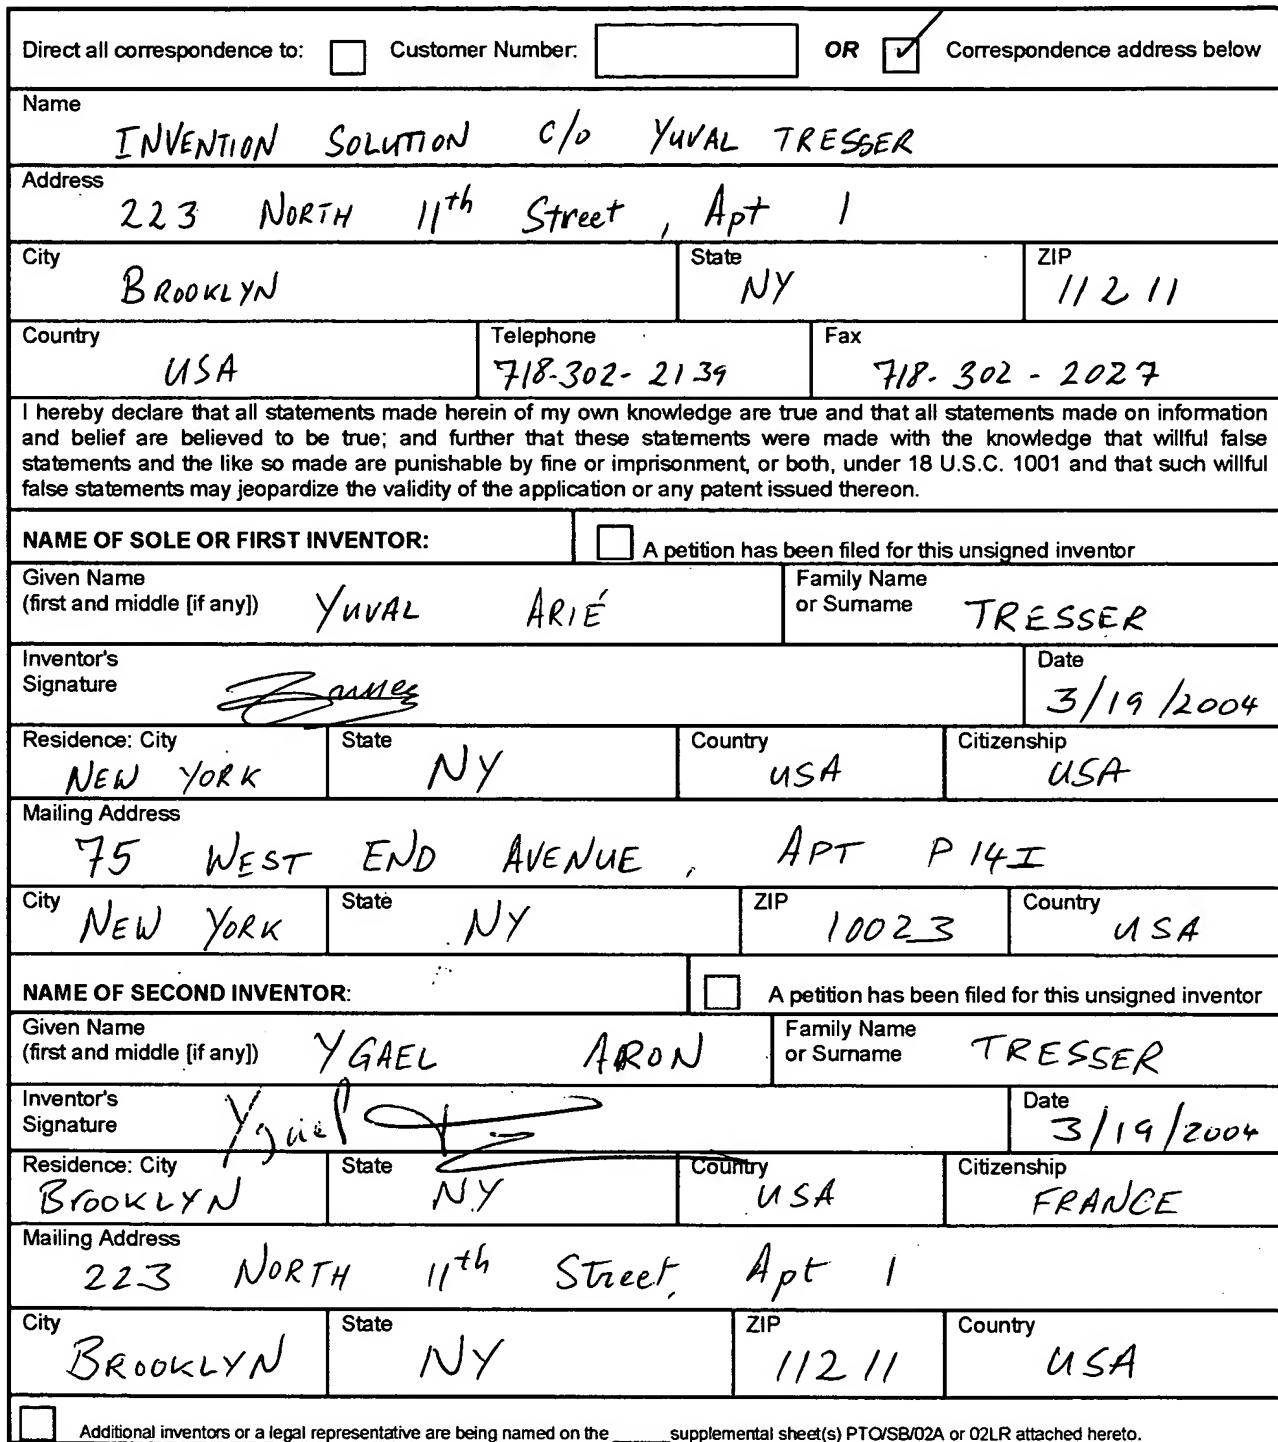 Direct all correspondence to: Customer Number: OR ✓ Correspondence address below
Name
INVENTION SOLUTION c/o YUVAL TRESSER
Address
223 NORTH 11th Street, Apt 1
City State ZIP
BROOKLYN NY 11211
Country Telephone Fax
USA 718-302-2139 718-302-2027
I hereby declare that all statements made herein of my own knowledge are true and that all statements made on information
and belief are believed to be true; and further that these statements were made with the knowledge that willful false
statements and the like so made are punishable by fine or imprisonment, or both, under 18 U.S.C. 1001 and that such willful
false statements may jeopardize the validity of the application or any patent issued thereon.
NAME OF SOLE OR FIRST INVENTOR: A petition has been filed for this unsigned inventor
Given Name
(first and middle [if any]) YUVAL ARIÉ
Family Name
or Surname TRESSER
Inventor's
Signature
Date
3/19/2004
Residence: City State Country Citizenship
NEW YORK NY USA USA
Mailing Address
75 WEST END AVENUE, APT P14I
City State ZIP Country
NEW YORK NY 10023 USA
NAME OF SECOND INVENTOR: A petition has been filed for this unsigned inventor
Given Name
(first and middle [if any]) YGAEL ARON
Family Name
or Surname TRESSER
Inventor's
Signature
Date
3/19/2004
Residence: City State Country Citizenship
BrooKLYN NY USA FRANCE
Mailing Address
223 NORTH 11th Street, Apt 1
City State ZIP Country
BROOKLYN NY 11211 USA
Additional inventors or a legal representative are being named on the ______ supplemental sheet(s) PTO/SB/02A or 02LR attached hereto.